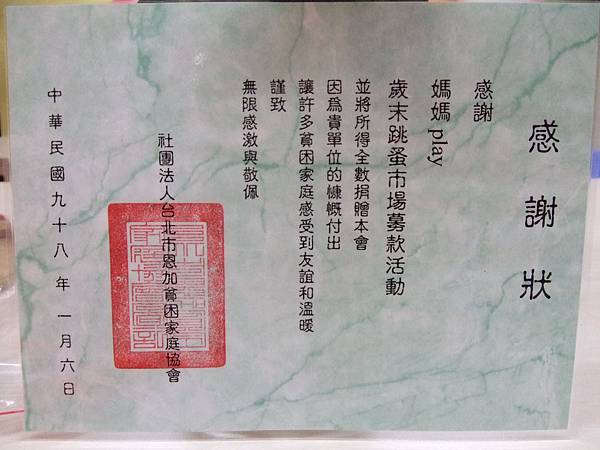 感謝狀
感謝
媽媽play
歲末跳蚤市場募款活動
並將所得全數捐贈本會
因為貴單位的慷慨付出
讓許多貧困家庭感受到友誼和溫暖
謹致
無限感激與敬佩
社團法人台北市恩加貧困家庭協會
中華民國九十八年一月六日